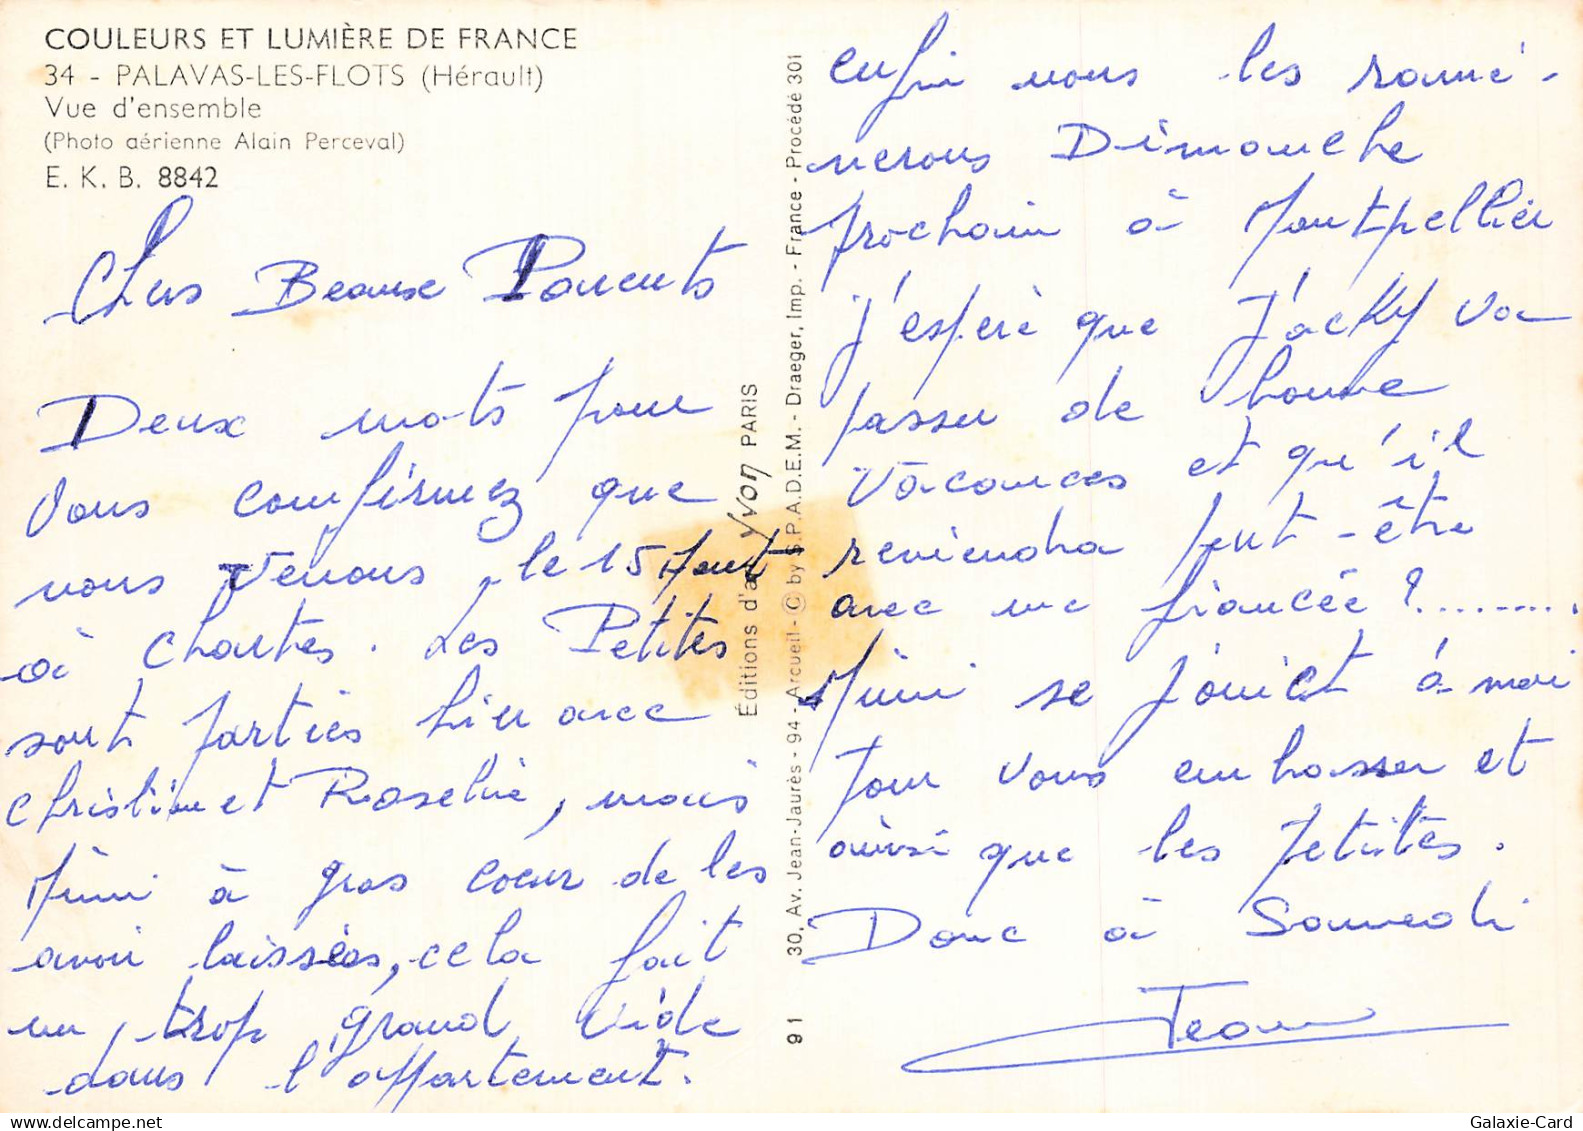 COULEURS ET LUMIÈRE DE FRANCE
34 - PALAVAS-LES-FLOTS (Hérault)
Vue d'ensemble
(Photo aérienne Alain Perceval)
E. K. B. 8842
Chers Beaux Parents
Deux mots pour
Vous confirmez que
nous venons le 15 Aout
à Chartes. Les Petites
sont parties hier avec
Christine et Roselie, mais
Mimi à gros coeur de les
avoir laissées, cela fait
un trop grand vide
dans l'appartement.
Éditions d'art Yvon PARIS
91 30, Av. Jean-Jaurès - 94 - Arcueil - © by S.P.A.D.E.M. - Draeger, Imp. - France - Procédé 301
enfin nous les ramé-
nerons Dimanche
prochain à Montpellier
j'esperè que Jacky va
passer de bonne
vacances et qu'il
reviendra peut-être
avec une fiancée ?.........
Mimi se joinct à moi
pour vous embrasser et
ainsi que les petites.
Donc à Samedi
Jean
Galaxie-Card